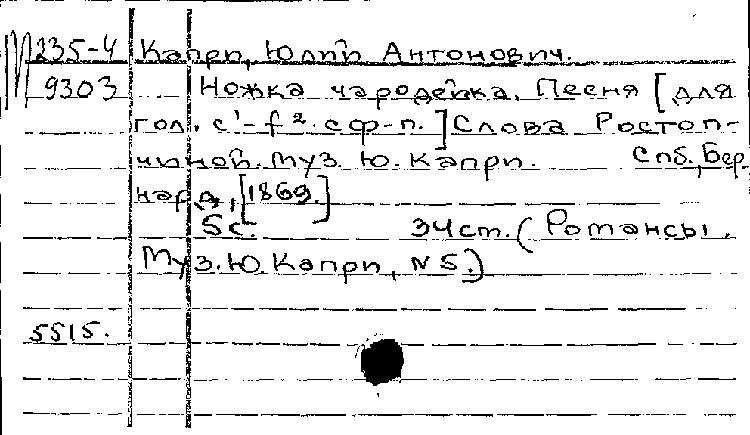 М 235-4 Капри, Юлий Антонович.
9303 Ножка чародейка. Песня [для
гол. c¹–f² с ф-п.] Слова Ростоп-
чиной. Муз. Ю. Капри. Спб., Бер-
нард, [1869.]
5 с. 34 ст. (Романсы.
Муз. Ю. Капри, № 5.)
5515.